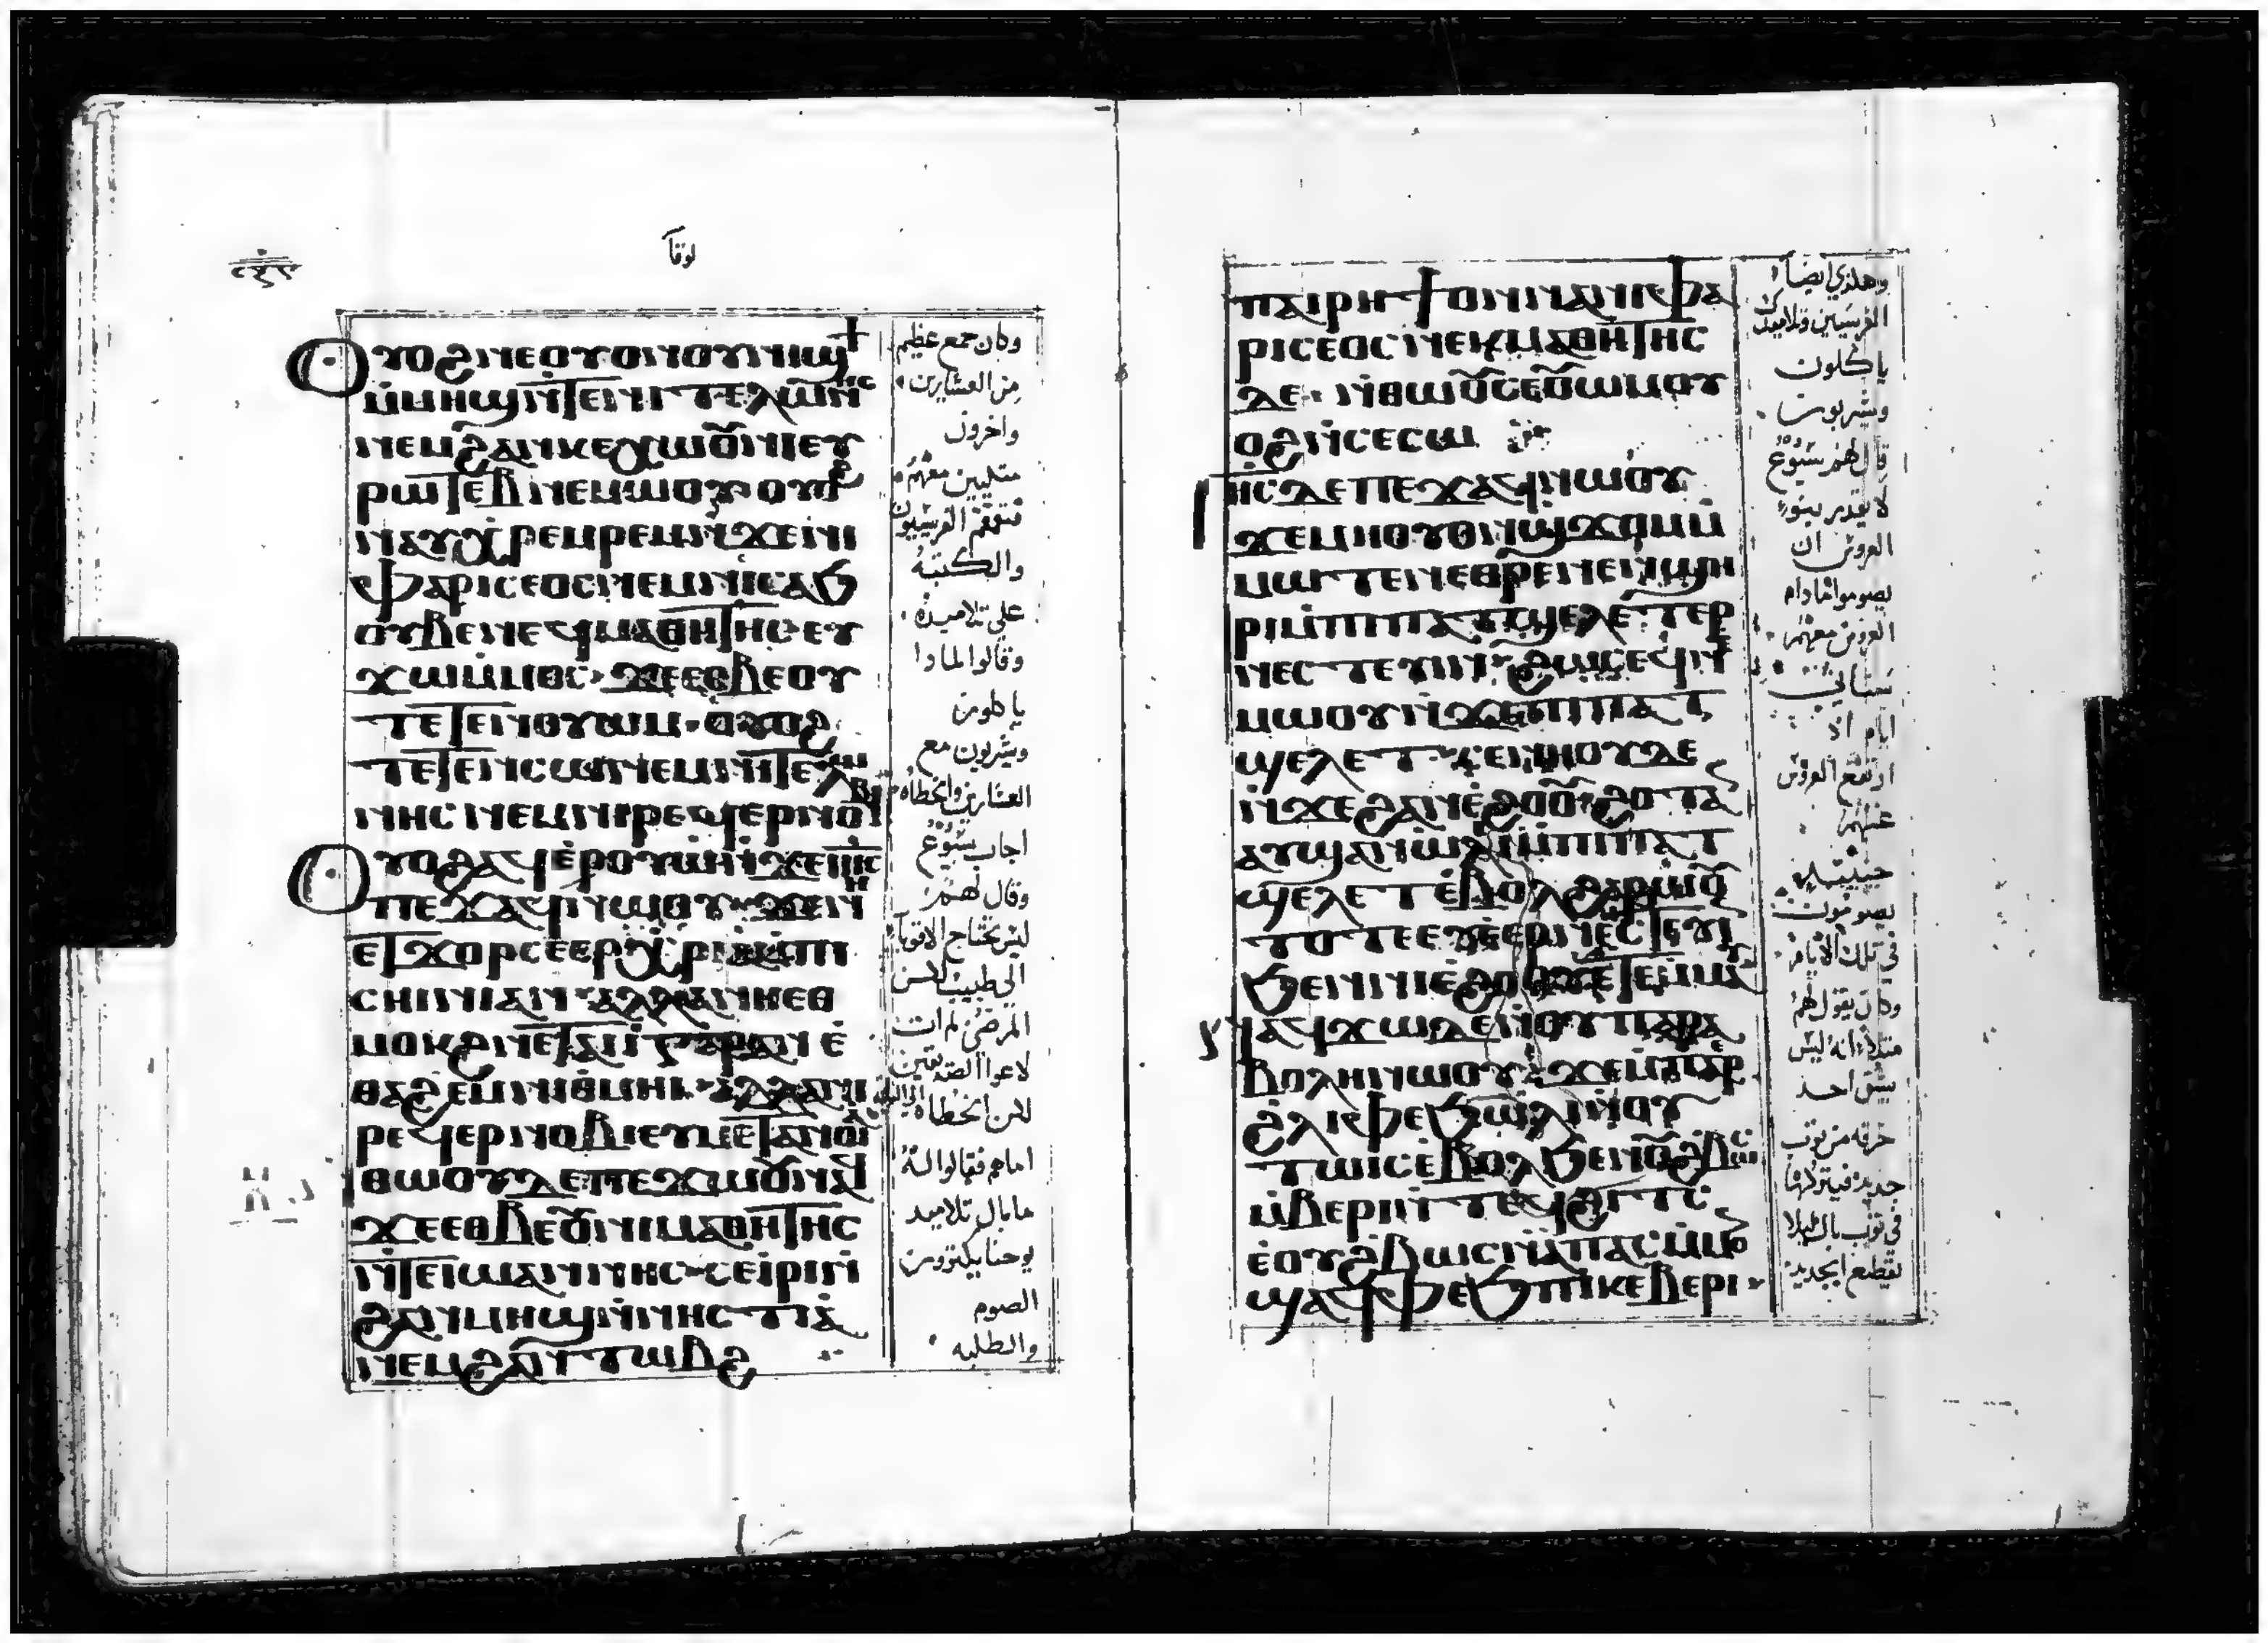 لوقا
ⲟⲩⲟϩ ⲛⲉ ⲟⲩⲟⲛ ⲟⲩⲛⲓϣϯ
ⲙ̀ⲙⲏϣ ⲛ̀ⲧⲉ ⲛⲓⲧⲉⲗⲱⲛⲏⲥ
ⲛⲉⲙ ϩⲁⲛⲕⲉⲭⲱⲟⲩⲛⲓ ⲉⲩ
ⲣⲱⲧⲉⲃ ⲛⲉⲙⲱⲟⲩ ⲟⲩⲟϩ
ⲛⲁⲩⲭⲣⲉⲙⲣⲉⲙ ⲛ̀ϫⲉ ⲛⲓ
ⲫⲁⲣⲓⲥⲉⲟⲥ ⲛⲉⲙ ⲛⲓⲥⲁϧ
ⲟⲩⲃⲉ ⲛⲉϥⲙⲁⲑⲏⲧⲏⲥ ⲉⲩ
ϫⲱ ⲙ̀ⲙⲟⲥ ϫⲉ ⲉⲑⲃⲉ ⲟⲩ
ⲧⲉⲧⲉⲛⲟⲩⲱⲙ ⲟⲩⲟϩ
ⲧⲉⲧⲉⲛⲥⲱ ⲛⲉⲙ ⲛⲓⲧⲉⲗⲱ
ⲛⲏⲥ ⲛⲉⲙ ⲛⲓⲣⲉϥⲉⲣⲛⲟⲃⲓ
ⲟⲩⲟϩ ⲁϥⲉ̀ⲣⲟⲩⲱ ⲛ̀ϫⲉ ⲓⲏⲥ
ⲡⲉϫⲁϥ ⲛⲱⲟⲩ ϫⲉ ⲛⲏ
ⲉⲧϫⲟⲣ ⲥⲉⲉⲣⲭⲣⲓⲁ ⲙ̀ⲡⲓ
ⲥⲏⲓⲛⲓ ⲁⲛ ⲁⲗⲗⲁ ⲛⲏ ⲉⲑ
ⲙⲟⲕϩ ⲛⲉⲧⲁⲓⲓ̀ ⲅⲁⲣ ⲁⲛ ⲉ̀
ⲑⲁϩⲉⲙ ⲛⲓⲑⲙⲏⲓ ⲁⲗⲗⲁ ⲛⲓ
ⲣⲉϥⲉⲣⲛⲟⲃⲓ ⲉⲩⲙⲉⲧⲁⲛⲟⲓⲁ
ⲛ̀ⲑⲱⲟⲩ ⲇⲉ ⲡⲉϫⲱⲟⲩ ⲛⲁϥ
ϫⲉ ⲉⲑⲃⲉⲟⲩ ⲛⲓⲙⲁⲑⲏⲧⲏⲥ
ⲛ̀ⲧⲉ ⲓⲱⲁⲛⲛⲏⲥ ⲥⲉⲓ̀ⲣⲓ ⲛ̀
ϩⲁⲛⲙⲏϣ ⲛ̀ⲛⲏⲥⲧⲓⲁ
ⲛⲉⲙ ϩⲁⲛⲧⲱⲃϩ
وكان جمع عظيم
من العشارين
واخرون
متكيين معهم
فتقمقم الفريسيون
والكتبة
على تلاميذه
وقالوا لماذا
ياكلون
ويشربون مع
العشارين والخطاه
اجاب يسوع
وقال لهم
ليس يحتاج الاقويا
الى طبيب لكن
المرضى لم ات
لادعوا الصديقين
لكن الخطاه الى التوبه
اما هم فقالوا له
ما بال تلاميد
يوحنا يكثرون
الصوم
والطلبه
ⲡⲁⲓⲣⲏϯ ⲟⲛ ⲛⲁⲛⲓⲫⲁ
ⲣⲓⲥⲉⲟⲥ ⲛⲉⲕⲙⲁⲑⲏⲧⲏⲥ
ⲇⲉ ⲛ̀ⲑⲱⲟⲩ ⲥⲉⲟⲩⲱⲙ ⲟⲩ
ⲟϩ ⲛ̀ⲥⲉⲥⲱ
ⲓⲏⲥ ⲇⲉ ⲡⲉϫⲁϥ ⲛⲱⲟⲩ
ϫⲉ ⲙⲏ ⲟⲩⲟⲛ ϣϫⲟⲙ ⲙ̀
ⲙⲱⲧⲉⲛ ⲉⲑⲣⲉ ⲛⲉⲛϣⲏ
ⲣⲓ ⲙ̀ⲡⲓⲡⲁⲧϣⲉⲗⲉⲧ ⲉⲣ
ⲛⲏⲥⲧⲉⲩⲓⲛ ϩⲱⲥ ⲉϥⲛⲉ
ⲙⲱⲟⲩ ⲛ̀ϫⲉ ⲡⲓⲡⲁⲧ
ϣⲉⲗⲉⲧ ⲥⲉⲛⲏⲟⲩ ⲇⲉ
ⲛ̀ϫⲉ ϩⲁⲛⲉ̀ϩⲟⲟⲩ ϩⲟⲧⲁⲛ
ⲁⲩϣⲁⲛⲱⲗⲓ ⲙ̀ⲡⲓⲡⲁⲧ
ϣⲉⲗⲉⲧ ⲉ̀ⲃⲟⲗ ϩⲁⲣⲱⲟⲩ
ⲧⲟⲧⲉ ⲉⲩⲉ̀ⲉⲣⲛⲏⲥⲧⲉⲩⲓⲛ
ϧⲉⲛ ⲛⲓⲉ̀ϩⲟⲟⲩ ⲉⲧⲉⲙⲙⲁⲩ
ⲛⲁϥϫⲱ ⲇⲉ ⲛ̀ⲟⲩⲡⲁⲣⲁ
ⲃⲟⲗⲏ ⲛⲱⲟⲩ ϫⲉ ⲙ̀ⲡⲁⲣⲉ
ϩⲗⲓ ⲫⲉϧ ⲱⲗⲓ ⲛ̀ⲟⲩ
ⲧⲱⲓⲥ ⲉ̀ⲃⲟⲗ ϧⲉⲛ ⲟⲩϩⲃⲱⲥ
ⲙ̀ⲃⲉⲣⲓ ⲛ̀ⲧⲉϥϩⲓⲧⲥ
ⲉ̀ⲟⲩϩⲃⲱⲥ ⲛ̀ⲁⲡⲁⲥ ⲙ̀ⲙⲟⲛ
ϣⲁϥⲫⲉϧ ⲡⲓⲕⲉⲃⲉⲣⲓ
وهكذي ايضا
الفريسيين وتلاميدك
ياكلون
ويشربون
قال لهم يسوع
لا يقدر بنو
العروس ان
يصوموا مادام
العروس معهم
ستاتي
ايام اذا
ارتفع العروس
عنهم
حينيد
يصومون
في تلك الايام
وكان يقول لهم
مثلا انه ليس
يشق احد
خرقه من ثوب
جديد فيتركها
في ثوب بال ليلا
تقطع الجديد